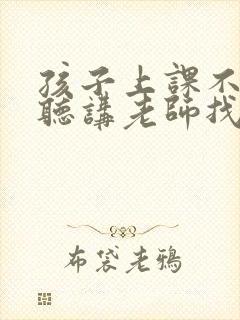 孩子上課不
聽講老師找
布袋老鴉